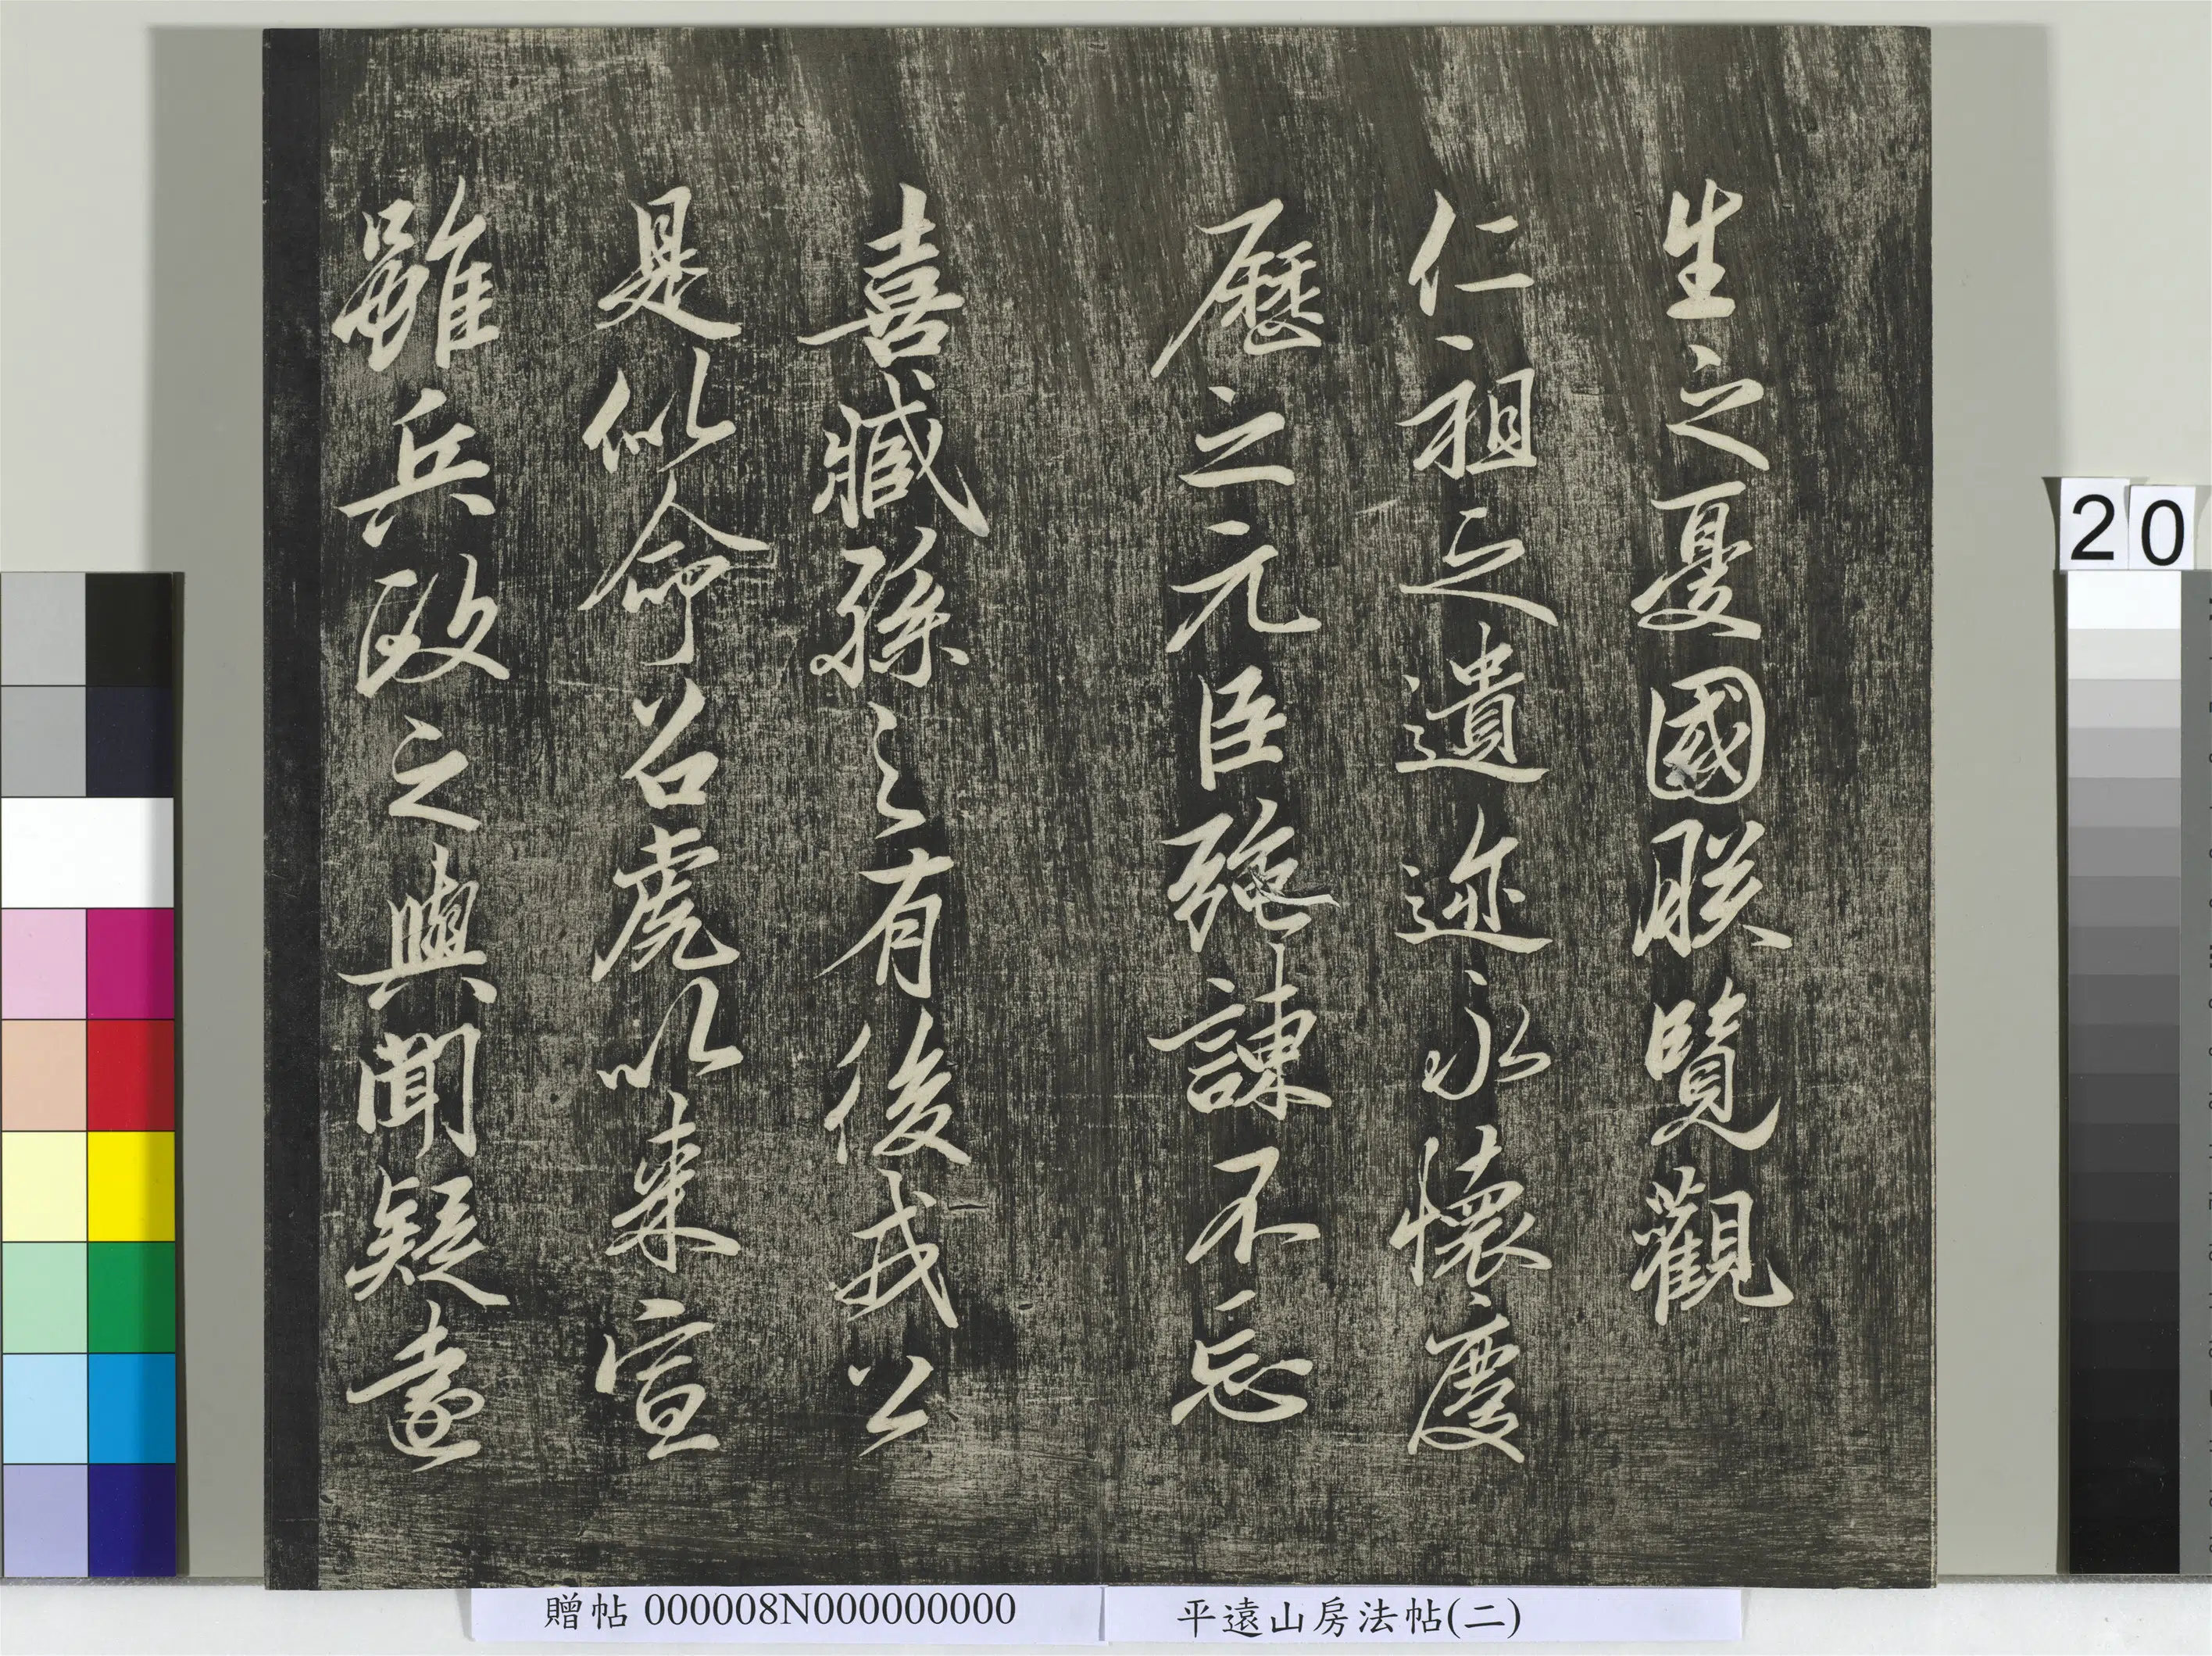 生之憂國朕覽觀
仁祖之遺迹永懷慶
歷之元臣強諫不忘
喜臧孫之有後戎公
是似命召虎以來宣
雖兵政之與聞疑遠
20
贈帖 000008N000000000
平遠山房法帖(二)